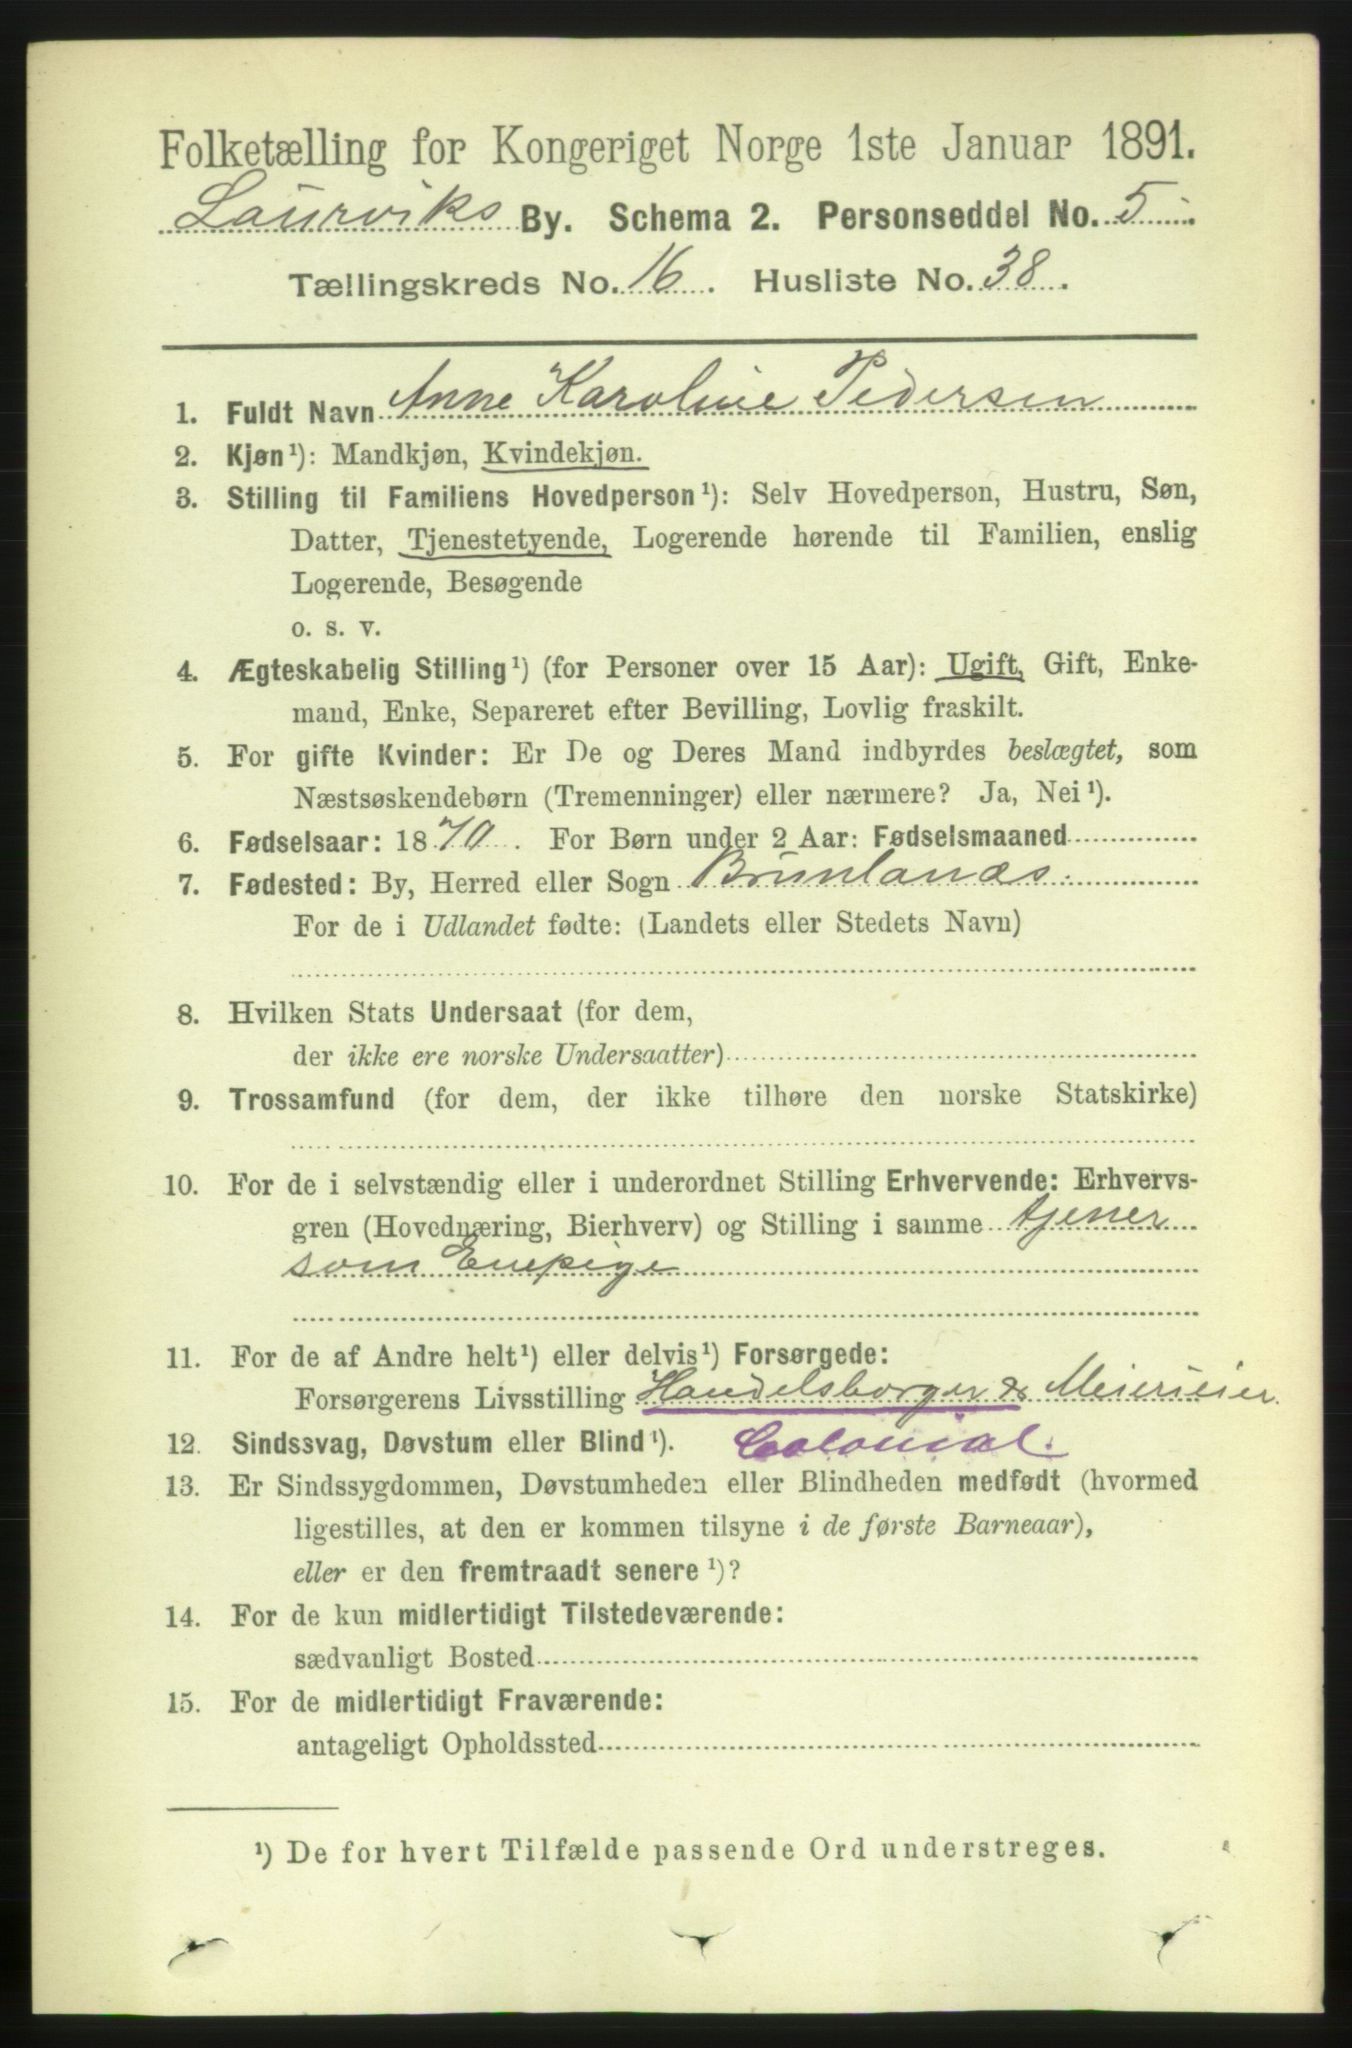 Folketælling for Kongeriget Norge 1ste Januar 1891.
Laurviks By. Schema 2. Personseddel No. 5.
Tællingskreds No. 16. Husliste No. 38.
1. Fuldt Navn Anne Karoline Pedersen
2. Kjøn¹): Mandkjøn, Kvindekjøn.
3. Stilling til Familiens Hovedperson¹): Selv Hovedperson, Hustru, Søn,
Datter, Tjenestetyende, Logerende hørende til Familien, enslig
Logerende, Besøgende
o. s. v.
4. Ægteskabelig Stilling¹) (for Personer over 15 Aar): Ugift, Gift, Enke-
mand, Enke, Separeret efter Bevilling, Lovlig fraskilt.
5. For gifte Kvinder: Er De og Deres Mand indbyrdes beslægtet, som
Næstsøskendebørn (Tremenninger) eller nærmere? Ja, Nei¹).
6. Fødselsaar: 1870. For Børn under 2 Aar: Fødselsmaaned
7. Fødested: By, Herred eller Sogn Brunlanæs.
For de i Udlandet fødte: (Landets eller Stedets Navn)
8. Hvilken Stats Undersaat (for dem,
der ikke ere norske Undersaatter)
9. Trossamfund (for dem, der ikke tilhøre den norske Statskirke)
10. For de i selvstændig eller i underordnet Stilling Erhvervende: Erhvervs-
gren (Hovednæring, Bierhverv) og Stilling i samme tjener
som Enepige
11. For de af Andre helt¹) eller delvis¹) Forsørgede:
Forsørgerens Livsstilling Handelsborger & Meierieier.
12. Sindssvag, Døvstum eller Blind¹). Colonial.
13. Er Sindssygdommen, Døvstumheden eller Blindheden medfødt (hvormed
ligestilles, at den er kommen tilsyne i de første Barneaar),
eller er den fremtraadt senere¹)?
14. For de kun midlertidigt Tilstedeværende:
sædvanligt Bosted
15. For de midlertidigt Fraværende:
antageligt Opholdssted
¹) De for hvert Tilfælde passende Ord understreges.